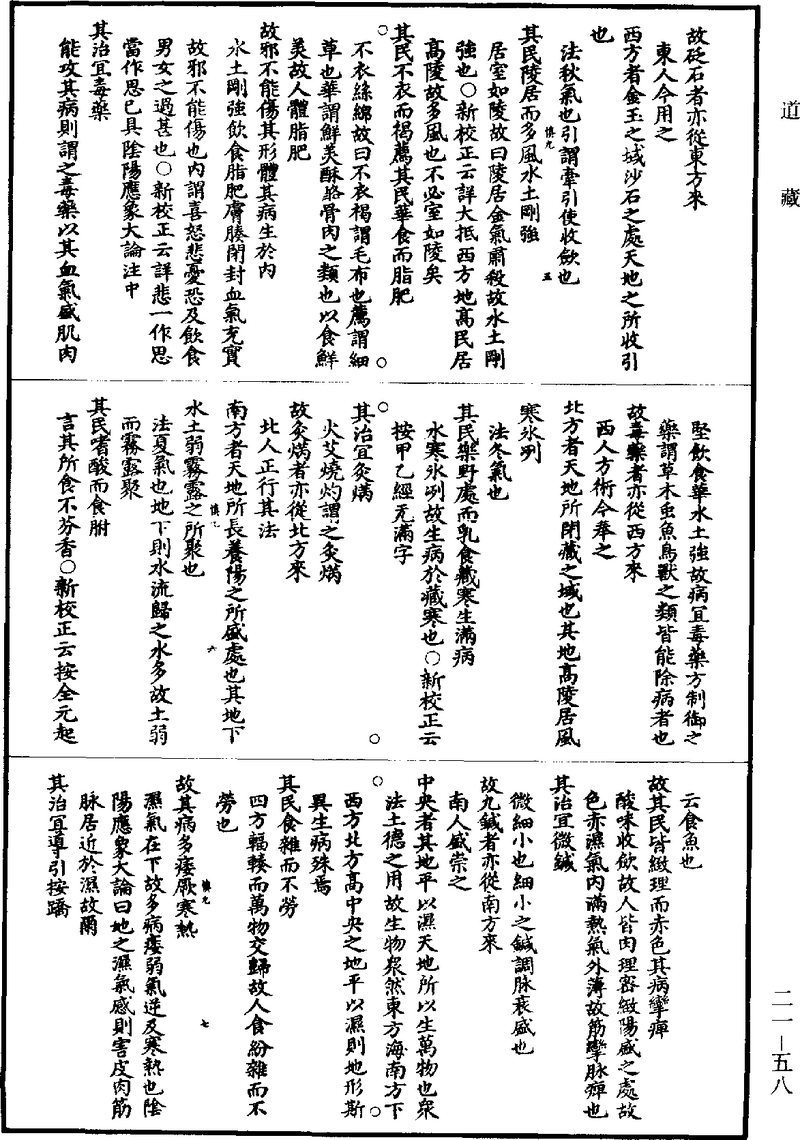 道藏
故砭石者亦從東方來
東人今用之
西方者金玉之域沙石之處天地之所收引
也
法秋氣也引謂牽引使收斂也
其民陵居而多風水土剛強
居室如陵故曰陵居金氣肅殺故水土剛
強也○新校正云詳大抵西方地高民居
高陵故多風也不必室如陵矣
其民不衣而褐薦其民華食而脂肥
不衣絲綿故曰不衣褐謂毛布也薦謂細
草也華謂鮮美酥酪骨肉之類也以食鮮
美故人體脂肥
故邪不能傷其形體其病生於內
水土剛強飲食脂肥膚腠閉封血氣充實
故邪不能傷也內謂喜怒悲憂恐及飲食
男女之過甚也○新校正云詳悲一作思
當作思已具陰陽應象大論注中
其治宜毒藥
能攻其病則謂之毒藥以其血氣盛肌肉
堅飲食華水土強故病宜毒藥方制御之
藥謂草木虫魚鳥獸之類皆能除病者也
故毒藥者亦從西方來
西人方術今奉之
北方者天地所閉藏之域也其地高陵居風
寒冰冽
法冬氣也
其民樂野處而乳食藏寒生滿病
水寒冰冽故生病於藏寒也○新校正云
按甲乙經无滿字
其治宜灸焫
火艾燒灼謂之灸焫
故灸焫者亦從北方來
北人正行其法
南方者天地所長養陽之所盛處也其地下
水土弱霧露之所聚也
法夏氣也地下則水流歸之水多故土弱
而霧露聚
其民嗜酸而食胕
言其所食不芬香○新校正云按全元起
云食魚也
故其民皆緻理而赤色其病攣痺
酸味收斂故人皆肉理密緻陽盛之處故
色赤濕氣內滿熱氣外薄故筋攣脉痺也
其治宜微鍼
微細小也細小之鍼調脉衰盛也
故九鍼者亦從南方來
南人盛崇之
中央者其地平以濕天地所以生萬物也衆
法土德之用故生物衆然東方海南方下
西方北方高中央之地平以濕則地形斯
異生病殊焉
其民食雜而不勞
四方輻輳而萬物交歸故人食紛雜而不
勞也
故其病多痿厥寒熱
濕氣在下故多病痿弱氣逆及寒熱也陰
陽應象大論曰地之濕氣感則害皮肉筋
脉居近於濕故爾
其治宜導引按蹻
二一—五八